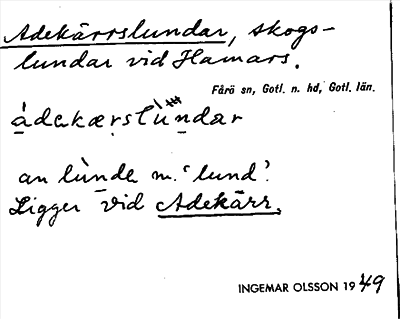 Adekärrslundar, skogs-
lundar vid Hamars.
Fårö sn, Gotl. n. hd, Gotl. län.
ådəkærslùndar
an lùndə m. ‘lund’.
Ligger vid Adekärr.
INGEMAR OLSSON 1949